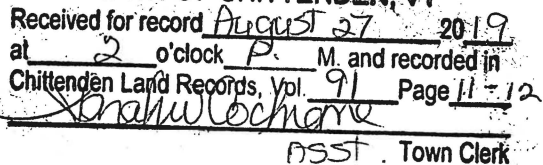 CHITTENDEN, VT
Received for record August 27 2019
at 2 o'clock P. M. and recorded in
Chittenden Land Records, Vol. 91 Page 11-12
Cochrane
ASST. Town Clerk